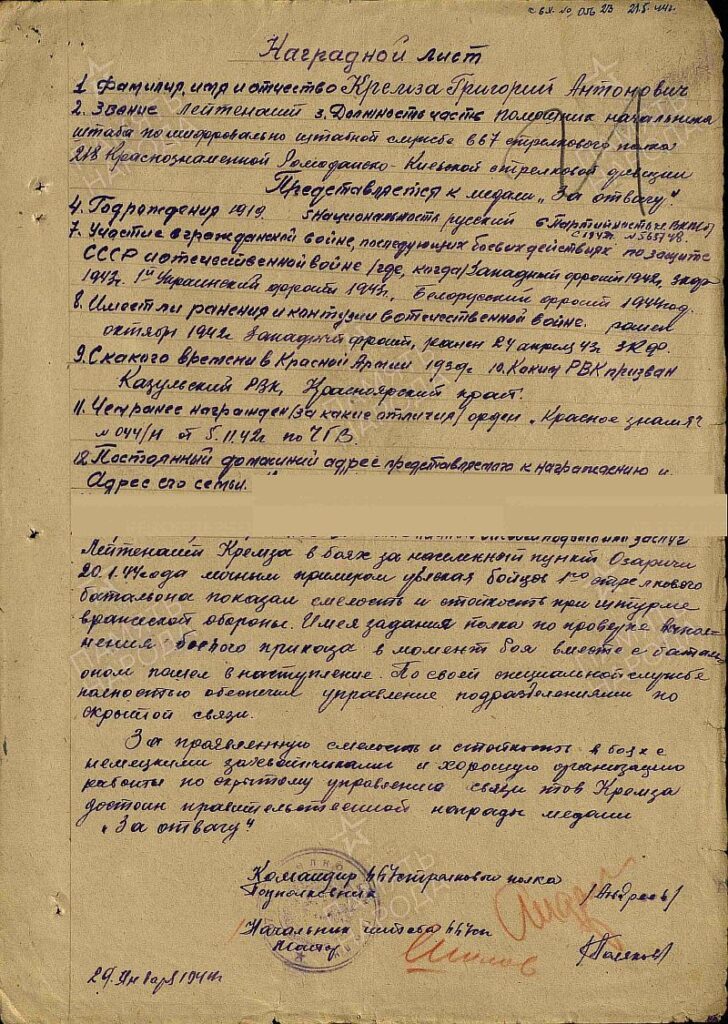 Наградной лист
1. Фамилия, имя и отчество Кремза Григорий Антонович
2. Звание Лейтенант 3. Должность часть помощник начальника
штаба по шифровально штабной службе 667 стрелкового полка
218 Краснознаменной Ромоданско-Киевской стрелковой дивизии
Представляется к медали „За отвагу"
4. Год рождения 1919. 5 Национальность русский 6 Партийность чл. ВКП(б)
7. Участие в гражданской войне, последующих боевых действиях по защите
СССР и отечественной войне /где, когда/ Западный фронт 1942,
1943г. 1й Украинский фронт 1943г., Белорусский фронт 1944 год.
8. Имеет ли ранения и контузии в отечественной войне. ранен
октября 1942г Западный фронт, ранен 24 апреля 43г.
9. С какого времени в Красной Армии 1939г 10. Каким РВК призван
РВК, Красноярский край.
11. Чем ранее награжден /за какие отличия/ орден „Красное знамя"
№ 044/н от 5.11.42г по
12. Постоянный домашний адрес представляемого к награждению и
Адрес его семьи.
Лейтенант Кремза в боях за населенный пункт Озаричи
20.1.44 года личным примером увлекая бойцов 1го стрелкового
батальона показал смелость и стойкость при штурме
вражеской обороны. Имея задания полка по проверке выпол-
нения боевого приказа в момент боя вместе с батал
оном пошел в наступление. По своей специальной службе
полностью обеспечил управление подразделениями по
скрытой связи.
За проявленную смелость и стойкость в боях с
немецкими захватчиками и хорошую организацию
работы по скрытому управлению связи т-щ Кремза
достоин правительственной награды медали
„За отвагу"
Командир 667 стрелкового полка
Подполковник /Андреев/
Начальник штаба 667 сп
Майор /Поляков/
29 Января 1944г